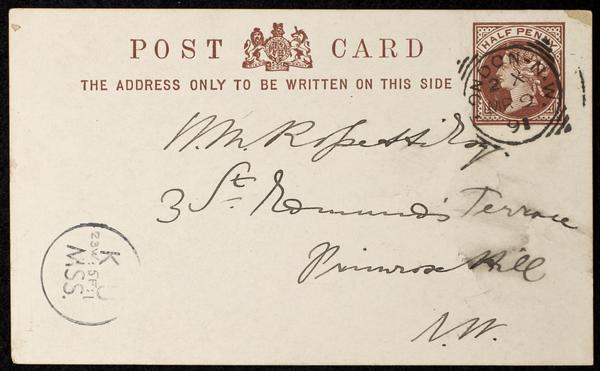 POST CARD
THE ADDRESS ONLY TO BE WRITTEN ON THIS SIDE
HALF PENNY
LONDON·N.W.
X
91
W. M. Rossetti Esq.
3 St. Edmund's Terrace
Primrose Hill
N.W.
K U
MSS.